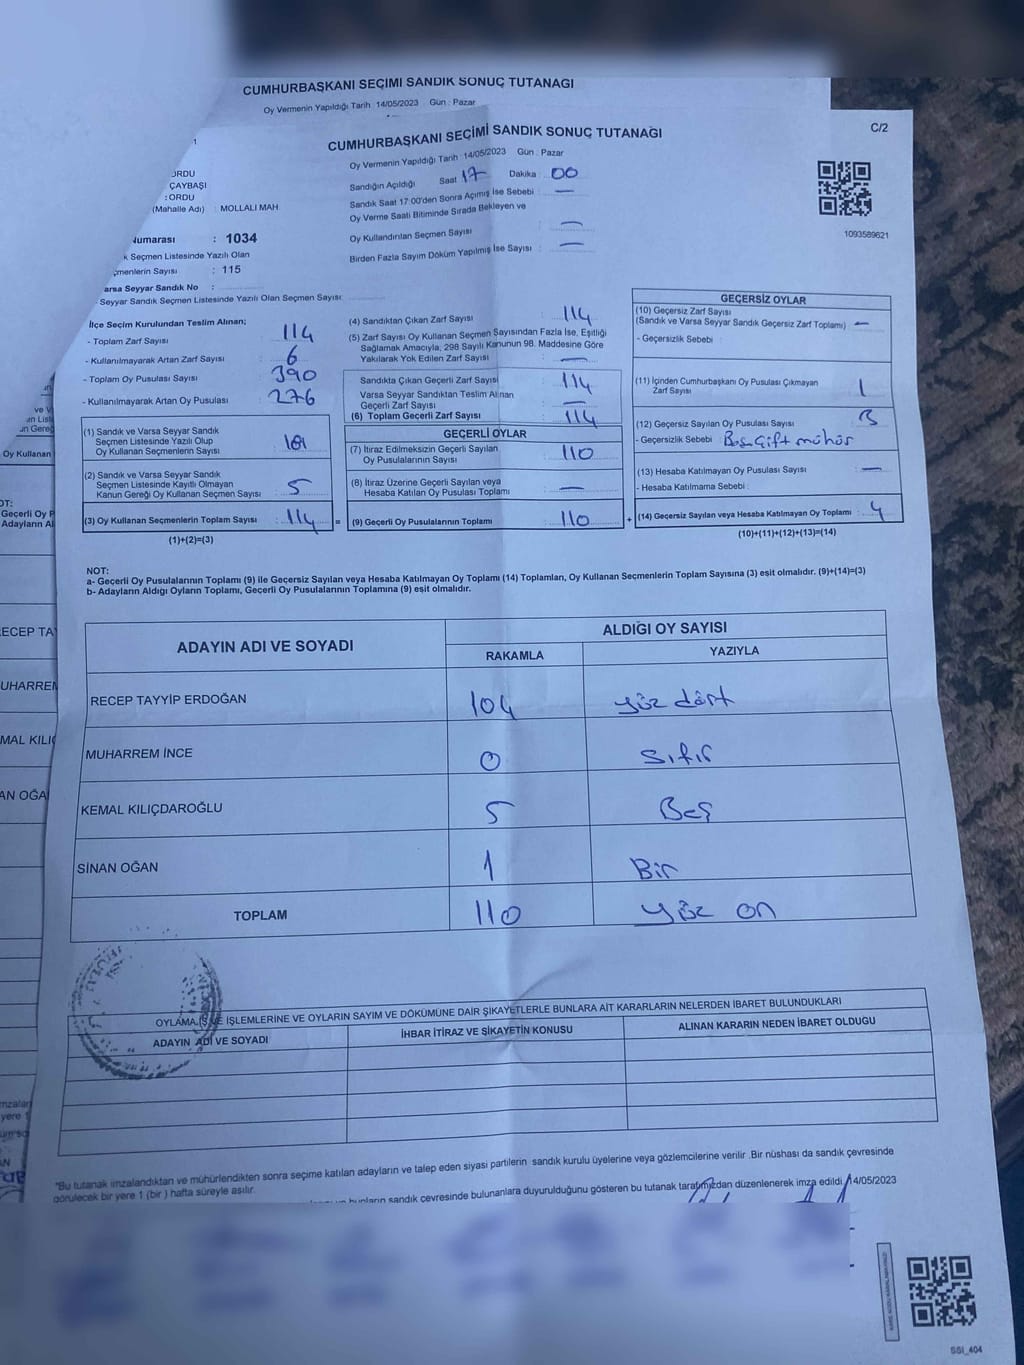 CUMHURBAŞKANI SEÇİMİ SANDIK SONUÇ TUTANAĞI
Oy Vermenin Yapıldığı Tarih 14/05/2023 Gün : Pazar
C/2
CUMHURBAŞKANI SEÇİMİ SANDIK SONUÇ TUTANAĞI
Oy Vermenin Yapıldığı Tarih 14/05/2023 Gün : Pazar
Sandığın Açıldığı Saat 17 Dakika : 00
Sandık Saat 17:00'den Sonra Açımış İse Sebebi : —
Oy Verme Saati Bitiminde Sırada Bekleyen ve
Oy Kullandırılan Seçmen Sayısı : —
Birden Fazla Sayım Döküm Yapılmış İse Sayısı : —
1093589621
ORDU
ÇAYBAŞI
: ORDU
(Mahalle Adı) : MOLLALI MAH
Numarası : 1034
k Seçmen Listesinde Yazılı Olan
çmenlerin Sayısı : 115
arsa Seyyar Sandık No :
Seyyar Sandık Seçmen Listesinde Yazılı Olan Seçmen Sayısı:
İlçe Seçim Kurulundan Teslim Alınan;
- Toplam Zarf Sayısı : 114
- Kullanılmayarak Artan Zarf Sayısı : 6
- Toplam Oy Pusulası Sayısı : 390
- Kullanılmayarak Artan Oy Pusulası : 276
(1) Sandık ve Varsa Seyyar Sandık
Seçmen Listesinde Yazılı Olup
Oy Kullanan Seçmenlerin Sayısı :
(2) Sandık ve Varsa Seyyar Sandık
Seçmen Listesinde Kayıtlı Olmayan
Kanun Gereği Oy Kullanan Seçmen Sayısı : 5
(3) Oy Kullanan Seçmenlerin Toplam Sayısı : 114 =
(1)+(2)=(3)
(4) Sandıktan Çıkan Zarf Sayısı : 114
(5) Zarf Sayısı Oy Kullanan Seçmen Sayısından Fazla İse, Eşitliği
Sağlamak Amacıyla, 298 Sayılı Kanunun 98. Maddesine Göre
Yakılarak Yok Edilen Zarf Sayısı : —
Sandıkta Çıkan Geçerli Zarf Sayısı : 114
Varsa Seyyar Sandıktan Teslim Alınan
Geçerli Zarf Sayısı : —
(6) Toplam Geçerli Zarf Sayısı : 114
GEÇERLİ OYLAR
(7) İtiraz Edilmeksizin Geçerli Sayılan
Oy Pusulalarının Sayısı : 110
(8) İtiraz Üzerine Geçerli Sayılan veya
Hesaba Katılan Oy Pusulası Toplamı : —
(9) Geçerli Oy Pusulalarının Toplamı : 110 +
GEÇERSİZ OYLAR
(10) Geçersiz Zarf Sayısı
(Sandık ve Varsa Seyyar Sandık Geçersiz Zarf Toplamı) : —
- Geçersizlik Sebebi :
(11) İçinden Cumhurbaşkanı Oy Pusulası Çıkmayan
Zarf Sayısı : 1
(12) Geçersiz Sayılan Oy Pusulası Sayısı : 3
- Geçersizlik Sebebi : Boş-Çift mühür
(13) Hesaba Katılmayan Oy Pusulası Sayısı : —
- Hesaba Katılmama Sebebi :
(14) Geçersiz Sayılan veya Hesaba Katılmayan Oy Toplamı : 4
(10)+(11)+(12)+(13)=(14)
NOT:
a- Geçerli Oy Pusulalarının Toplamı (9) ile Geçersiz Sayılan veya Hesaba Katılmayan Oy Toplamı (14) Toplamları, Oy Kullanan Seçmenlerin Toplam Sayısına (3) eşit olmalıdır. (9)+(14)=(3)
b- Adayların Aldığı Oyların Toplamı, Geçerli Oy Pusulalarının Toplamına (9) eşit olmalıdır.
ADAYIN ADI VE SOYADI ALDIĞI OY SAYISI
RAKAMLA YAZIYLA
RECEP TAYYİP ERDOĞAN 104 yüz dört
MUHARREM İNCE 0 Sıfır
KEMAL KILIÇDAROĞLU 5 Beş
SİNAN OĞAN 1 Bir
TOPLAM 110 yüz on
OYLAMA İŞ VE İŞLEMLERİNE VE OYLARIN SAYIM VE DÖKÜMÜNE DAİR ŞİKAYETLERLE BUNLARA AİT KARARLARIN NELERDEN İBARET BULUNDUKLARI
ADAYIN ADI VE SOYADI İHBAR İTİRAZ VE ŞİKAYETİN KONUSU ALINAN KARARIN NEDEN İBARET OLDUGU
"Bu tutanak imzalandıktan ve mühürlendikten sonra seçime katılan adayların ve talep eden siyasi partilerin sandık kurulu üyelerine veya gözlemcilerine verilir .Bir nüshası da sandık çevresinde
görülecek bir yere 1 (bir ) hafta süreyle asılır.
bunların sandık çevresinde bulunanlara duyurulduğunu gösteren bu tutanak tarafımızdan düzenlenerek imza edildi.14/05/2023
SSI_404